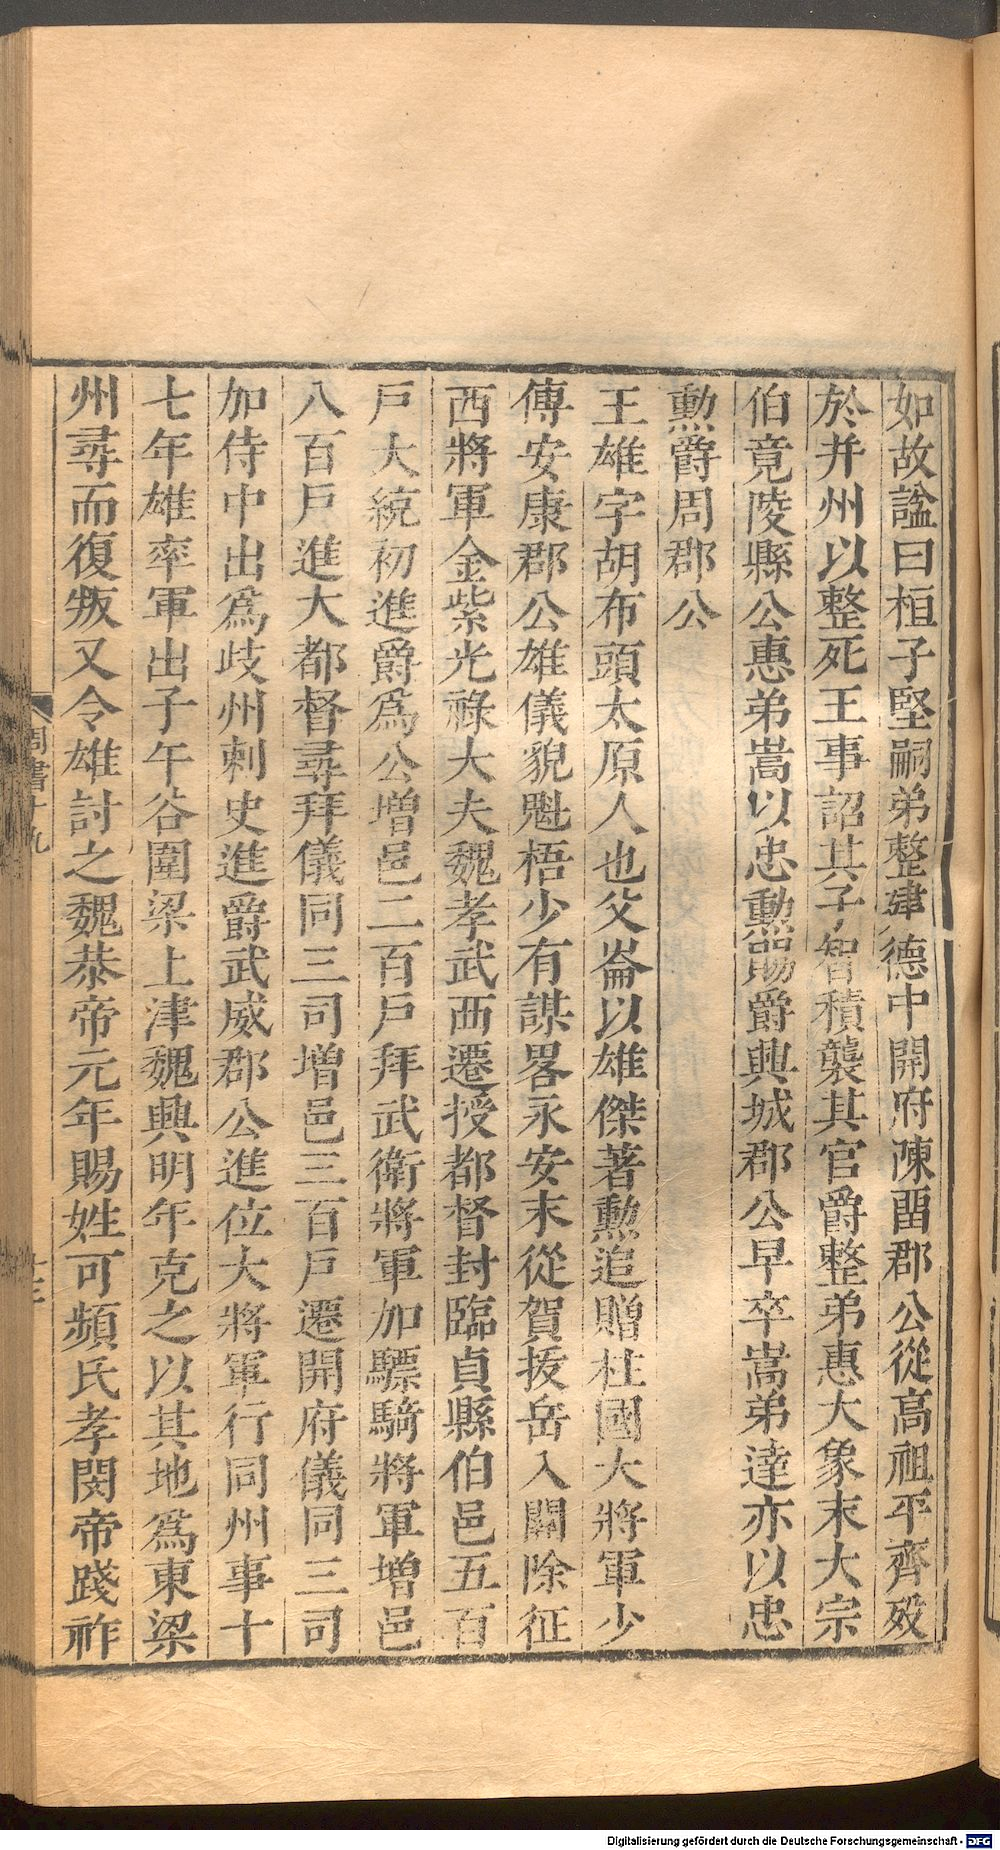 如故諡曰桓子堅嗣弟整建德中開府陳畱郡公從高祖平齊歿
於并州以整死王事詔其子智積襲其官爵整弟惠大象末大宗
伯竟陵縣公惠弟嵩以忠勲賜爵興城郡公早卒嵩弟達亦以忠
勲爵周郡公
王雄字胡布頭太原人也父崙以雄傑著勲追贈柱國大將軍少
傅安康郡公雄儀貌魁梧少有謀畧永安末從賀拔岳入關除征
西將軍金紫光祿大夫魏孝武西遷授都督封臨貞縣伯邑五百
戶大統初進爵爲公增邑二百戶拜武衛將軍加驃騎將軍增邑
八百戶進大都督尋拜儀同三司增邑三百戶遷開府儀同三司
加侍中出爲歧州刺史進爵武威郡公進位大將軍行同州事十
七年雄率軍出子午谷圍梁上津魏興明年克之以其地爲東梁
州尋而復叛又令雄討之魏恭帝元年賜姓可頻氏孝閔帝踐祚
周書十九
十三
Digitalisierung gefördert durch die Deutsche Forschungsgemeinschaft - DFG